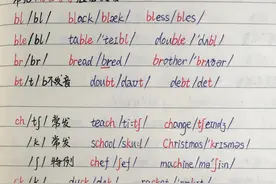 bl /bl/ block /blæk/ bless /bles/
ble /bl/ table /'teɪbl/ double /'dʌbl/
br /br/ bread /bred/ brother /'brʌðər/
bt /t/ b不发音 doubt /daʊt/ debt /det/
ch /tʃ/ 常发 teach /ti:tʃ/ change /tʃeɪndʒ/
/k/ 常发 school /sku:l/ Christmas /'krɪsməs/
/ʃ/ 特例 chef /ʃef/ machine /mə'ʃi:n/